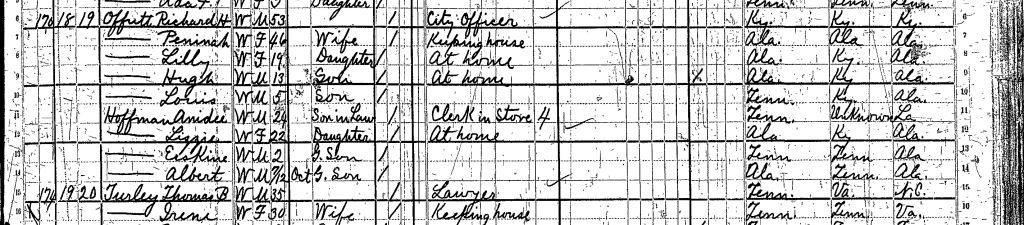 Ada F. W F 3 Daughter Tenn. Tenn. Tenn.
6 176 18 19 Offutt Richard H W M 53 / City Officer Ky. Ky. Ky. 6
7 —— Peninah W F 46 Wife / Kuping house Ala. Ala Ala. 7
8 —— Lilly W F 19 Daughter / At home Ala. Ky. Ala. 8
9 —— Hugh W M 13 Son / At home / Ala. Ky Ala. 9
10 —— Louis W M 5 Son / Tenn. Ky. Ala. 10
11 Hoffman Amidee W M 24 Son in Law / Clerk in Store 4 Tenn. Unknown La 11
12 —— Lizzie W F 22 Daughter / At home Ala Ky Ala. 12
13 —— Erskine W M 2 G. Son / Tenn Tenn Ala 13
14 —— Albert W M 7/12 Oct G. Son / Ala. Tenn. Ala. 14
15 176 19 20 Turley Thomas B W M 35 / Lawyer Tenn. Va. N.C. 15
16 —— Irene W F 30 Wife / Keeping house Tenn. Tenn. Va. 16